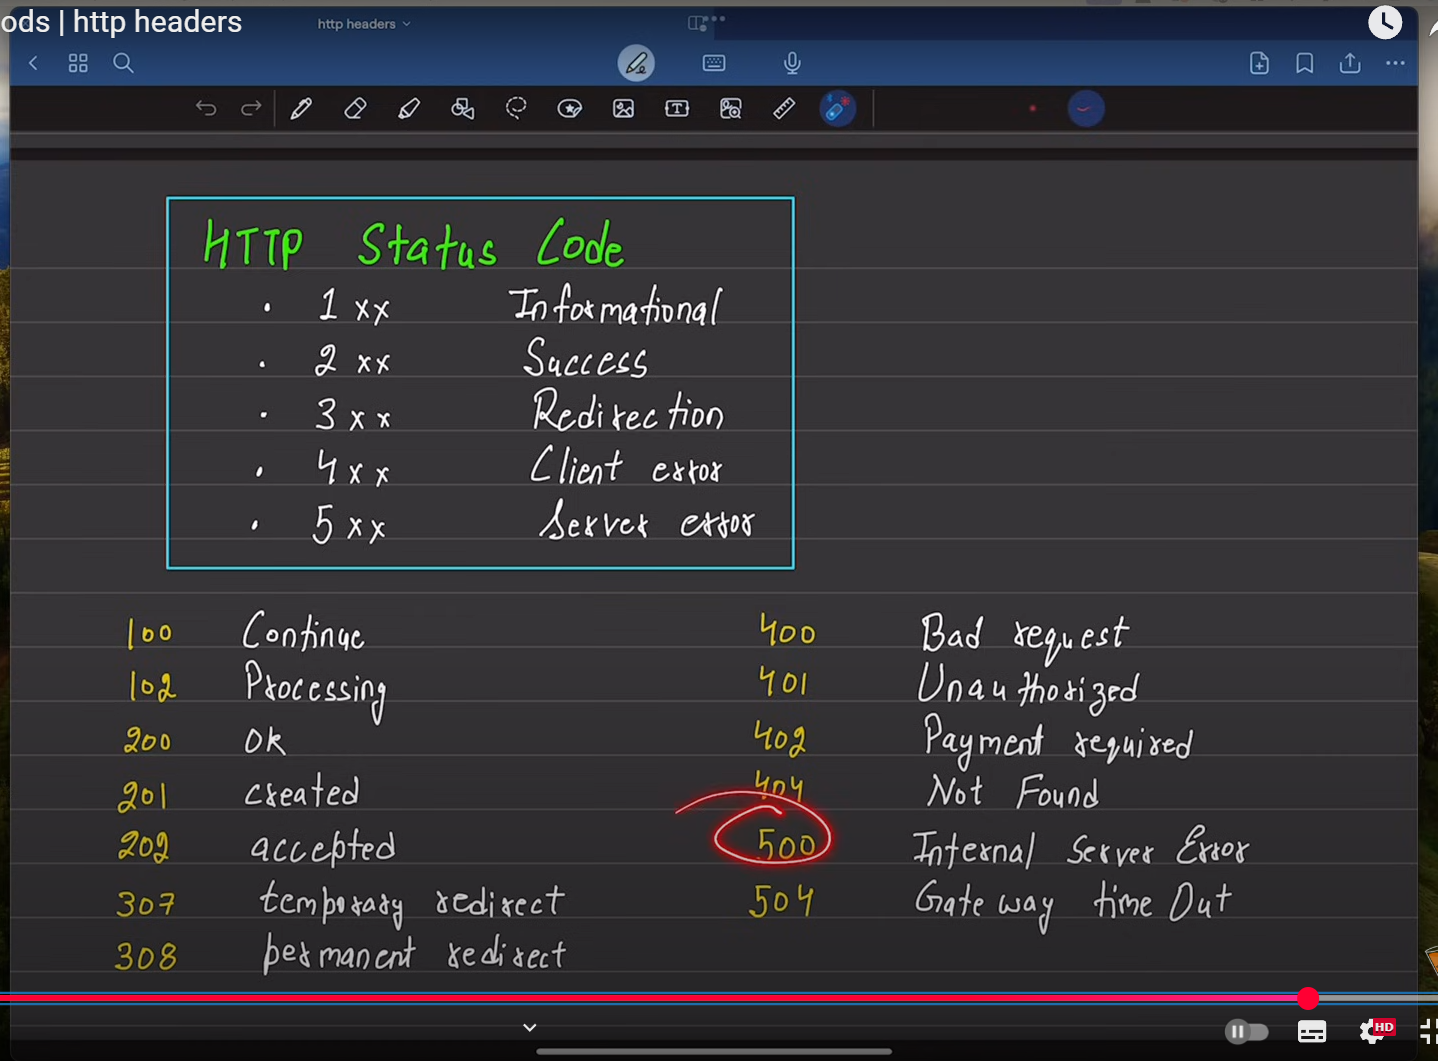 ods | http headers
http headers
HTTP Status Code
· 1xx Informational
· 2xx Success
· 3xx Redirection
· 4xx Client error
· 5xx Server error
100 Continue
102 Processing
200 Ok
201 created
202 accepted
307 temporary redirect
308 permanent redirect
400 Bad request
401 Unauthorized
402 Payment required
404 Not Found
500 Internal Server Error
504 Gateway time Out
HD